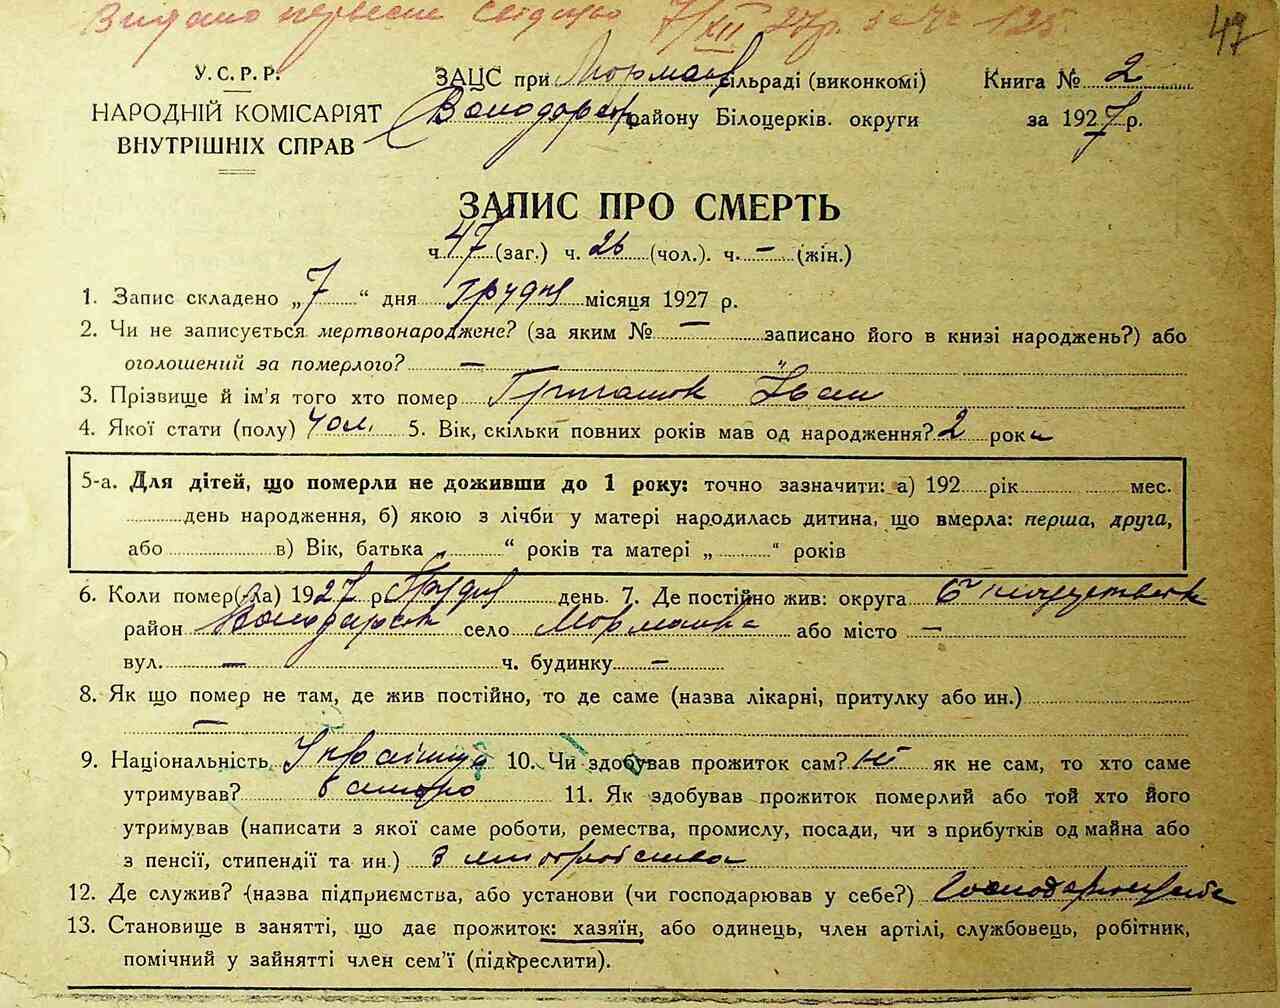 Видано первесне свідоцво 7/XII 27р. за № 125.
47
У.С.Р.Р.
НАРОДНІЙ КОМІСАРІЯТ
ВНУТРІШНІХ СПРАВ
ЗАЦС при сільраді (виконкомі)
Володарськ району Білоцерків. округи
Книга № 2
за 1927 р.
ЗАПИС ПРО СМЕРТЬ
ч. 47 (заг.) ч. 26 (чол.). ч. – (жін.)
1. Запис складено „7“ дня Грудня місяця 1927 р.
2. Чи не записується мертвонароджене? (за яким № – записано його в книзі народжень?) або
оголошений за померлого? –
3. Прізвище й ім'я того хто помер Іван
4. Якої стати (полу) чол. 5. Вік, скільки повних років мав од народження? 2 роки
5-а. Для дітей, що померли не доживши до 1 року: точно зазначити: а) 192 рік мес.
день народження, б) якою з лічби у матері народилась дитина, що вмерла: перша, друга,
або в) Вік, батька „ “ років та матері „ “ років
6. Коли помер(-ла) 1927 р. Грудня день. 7. Де постійно жив: округа
район Володарськ село або місто –
вул. – ч. будинку –
8. Як що помер не там, де жив постійно, то де саме (назва лікарні, притулку або ин.)
–
9. Національність 10. Чи здобував прожиток сам? ні як не сам, то хто саме
утримував? батько 11. Як здобував прожиток померлий або той хто його
утримував (написати з якої саме роботи, ремества, промислу, посади, чи з прибутків од майна або
з пенсії, стипендії та ин.) З хліборобства
12. Де служив? (назва підприємства, або установи (чи господарював у себе?)
13. Становище в занятті, що дає прожиток: хазяїн, або одинець, член артілі, службовець, робітник,
помічний у зайнятті член сем'ї (підкреслити).